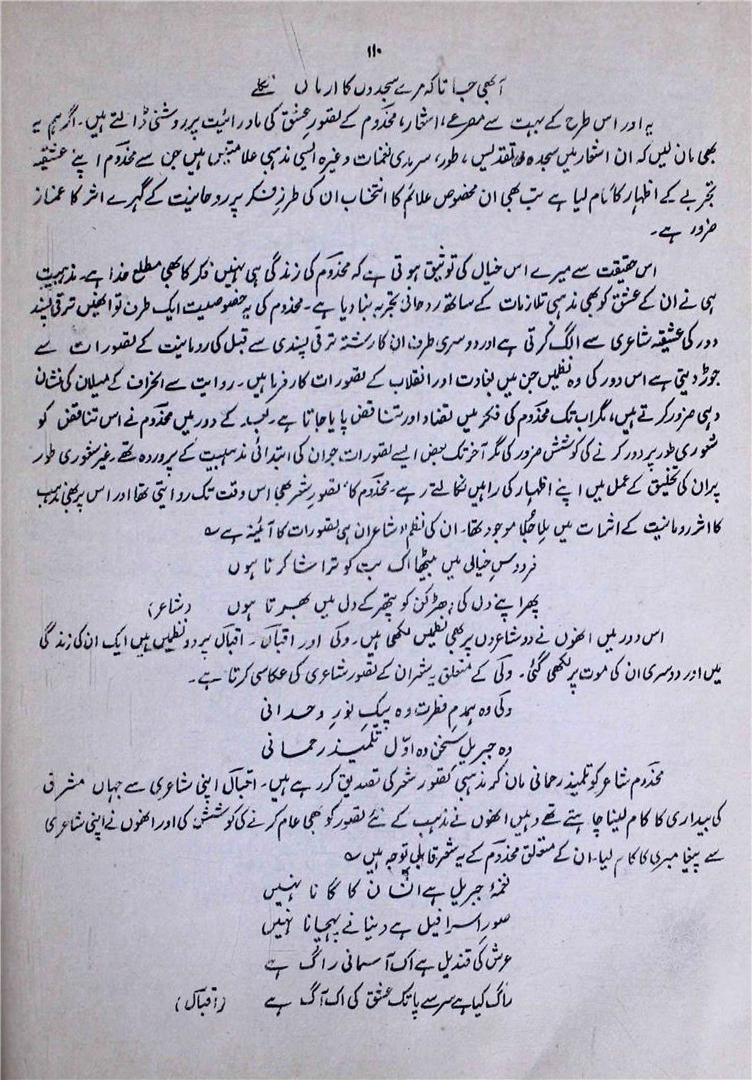 ۱۱۰
آ بھی جا تا کہ مرے سجدوں کا ارماں نکلے
یہ اور اس طرح کے بہت سے مصرعے، اشعار، مخدوم کے تصورِ عشق کی ماورائیت پر روشنی ڈالتے ہیں۔ اگر ہم یہ
بھی مان لیں کہ ان اشعار میں سجدہ، تقدیس، طور، سرمدی نغمات وغیرہ ایسی مذہبی علامتیں ہیں جن سے مخدوم اپنے عشقیہ
تجربے کے اظہار کا کام لیا ہے تب بھی ان مخصوص علائم کا انتخاب ان کی طرزِ فکر پر روحانیت کے گہرے اثر کا غماز
ضرور ہے۔
اس حقیقت سے میرے اس خیال کی توثیق ہوتی ہے کہ مخدوم کی زندگی ہی نہیں فکر کا بھی مطلع خدا ہے۔ مذہبیت
ہی نے ان کے عشق کو بھی مذہبی تلازمات کے ساتھ روحانی تجربہ بنا دیا ہے۔ مخدوم کی یہ خصوصیت ایک طرف تو انھیں ترقی پسند
دور کی عشقیہ شاعری سے الگ کرتی ہے اور دوسری طرف ان کا رشتہ ترقی پسندی سے قبل کی رومانیت کے تصورات سے
جوڑ دیتی ہے اس دور کی وہ نظمیں جن میں بغاوت اور انقلاب کے تصورات کارفرما ہیں۔ روایت سے انحراف کے میلان کی نشان
دہی ضرور کرتے ہیں، مگر اب تک مخدوم کی فکر میں تضاد اور تناقض پایا جاتا ہے۔ بعد کے دور میں مخدوم نے اس تناقض کو
شعوری طور پر دور کرنے کی کوشش ضرور کی مگر آخر تک بعض ایسے تصورات جو ان کی ابتدائی مذہبیت کے پروردہ تھے۔ غیر شعوری طور
پر ان کی تخلیق کے عمل میں اپنے اظہار کی راہیں نکالتے رہے۔ مخدوم کا تصورِ شعر بھی اس وقت تک روایتی تھا اور اس پر بھی مذہب
کا اثر رومانیت کے اثرات میں ملا جلا موجود تھا۔ ان کی نظم "شاعر" ان ہی تصورات کا آئینہ ہے ؎
فردوسِ خیالی میں بیٹھا اک بت کو تراشا کرتا ہوں
پھر اپنے دل کی دھڑکن کو پتھر کے دل میں بھرتا ہوں (شاعر)
اس دور میں انھوں نے دو شاعروں پر بھی نظمیں لکھی ہیں۔ ولی اور اقبال۔ اقبال پر دو نظمیں ہیں ایک ان کی زندگی
میں اور دوسری ان کی موت پر لکھی گئی۔ ولی کے متعلق یہ شعر ان کے تصورِ شاعری کی عکاسی کرتا ہے۔
ولی وہ ہمدمِ فطرت وہ پیکِ نورِ وحدانی
وہ جبریلِ سخن وہ اوّل تلمیذِ رحمانی
مخدوم شاعر کو تلمیذ رحمانی مان کر مذہبی تصورِ شعر کی تصدیق کر رہے ہیں۔ اقبال اپنی شاعری سے جہاں مشرق
کی بیداری کا کام لینا چاہتے تھے وہیں انھوں نے مذہب کے نئے تصور کو بھی عام کرنے کی کوشش کی اور انھوں نے اپنی شاعری
سے پیغامبری کا کام لیا۔ ان کے متعلق مخدوم کے یہ شعر قابلِ توجہ ہیں ؎
نغمۂ جبریل ہے انسان کا گانا نہیں
صورِ اسرافیل ہے دنیا نے پہچانا نہیں
عرش کی قندیل ہے اک آسمانی راگ ہے
راگ کیا ہے سر سے پا تک عشق کی اک آگ ہے (اقبال)